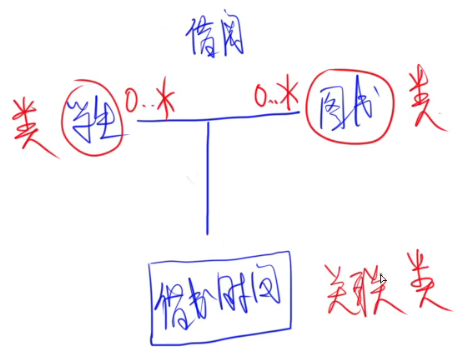 借阅
类 学生 0..* 0..* 图书 类
借书时间 关联类